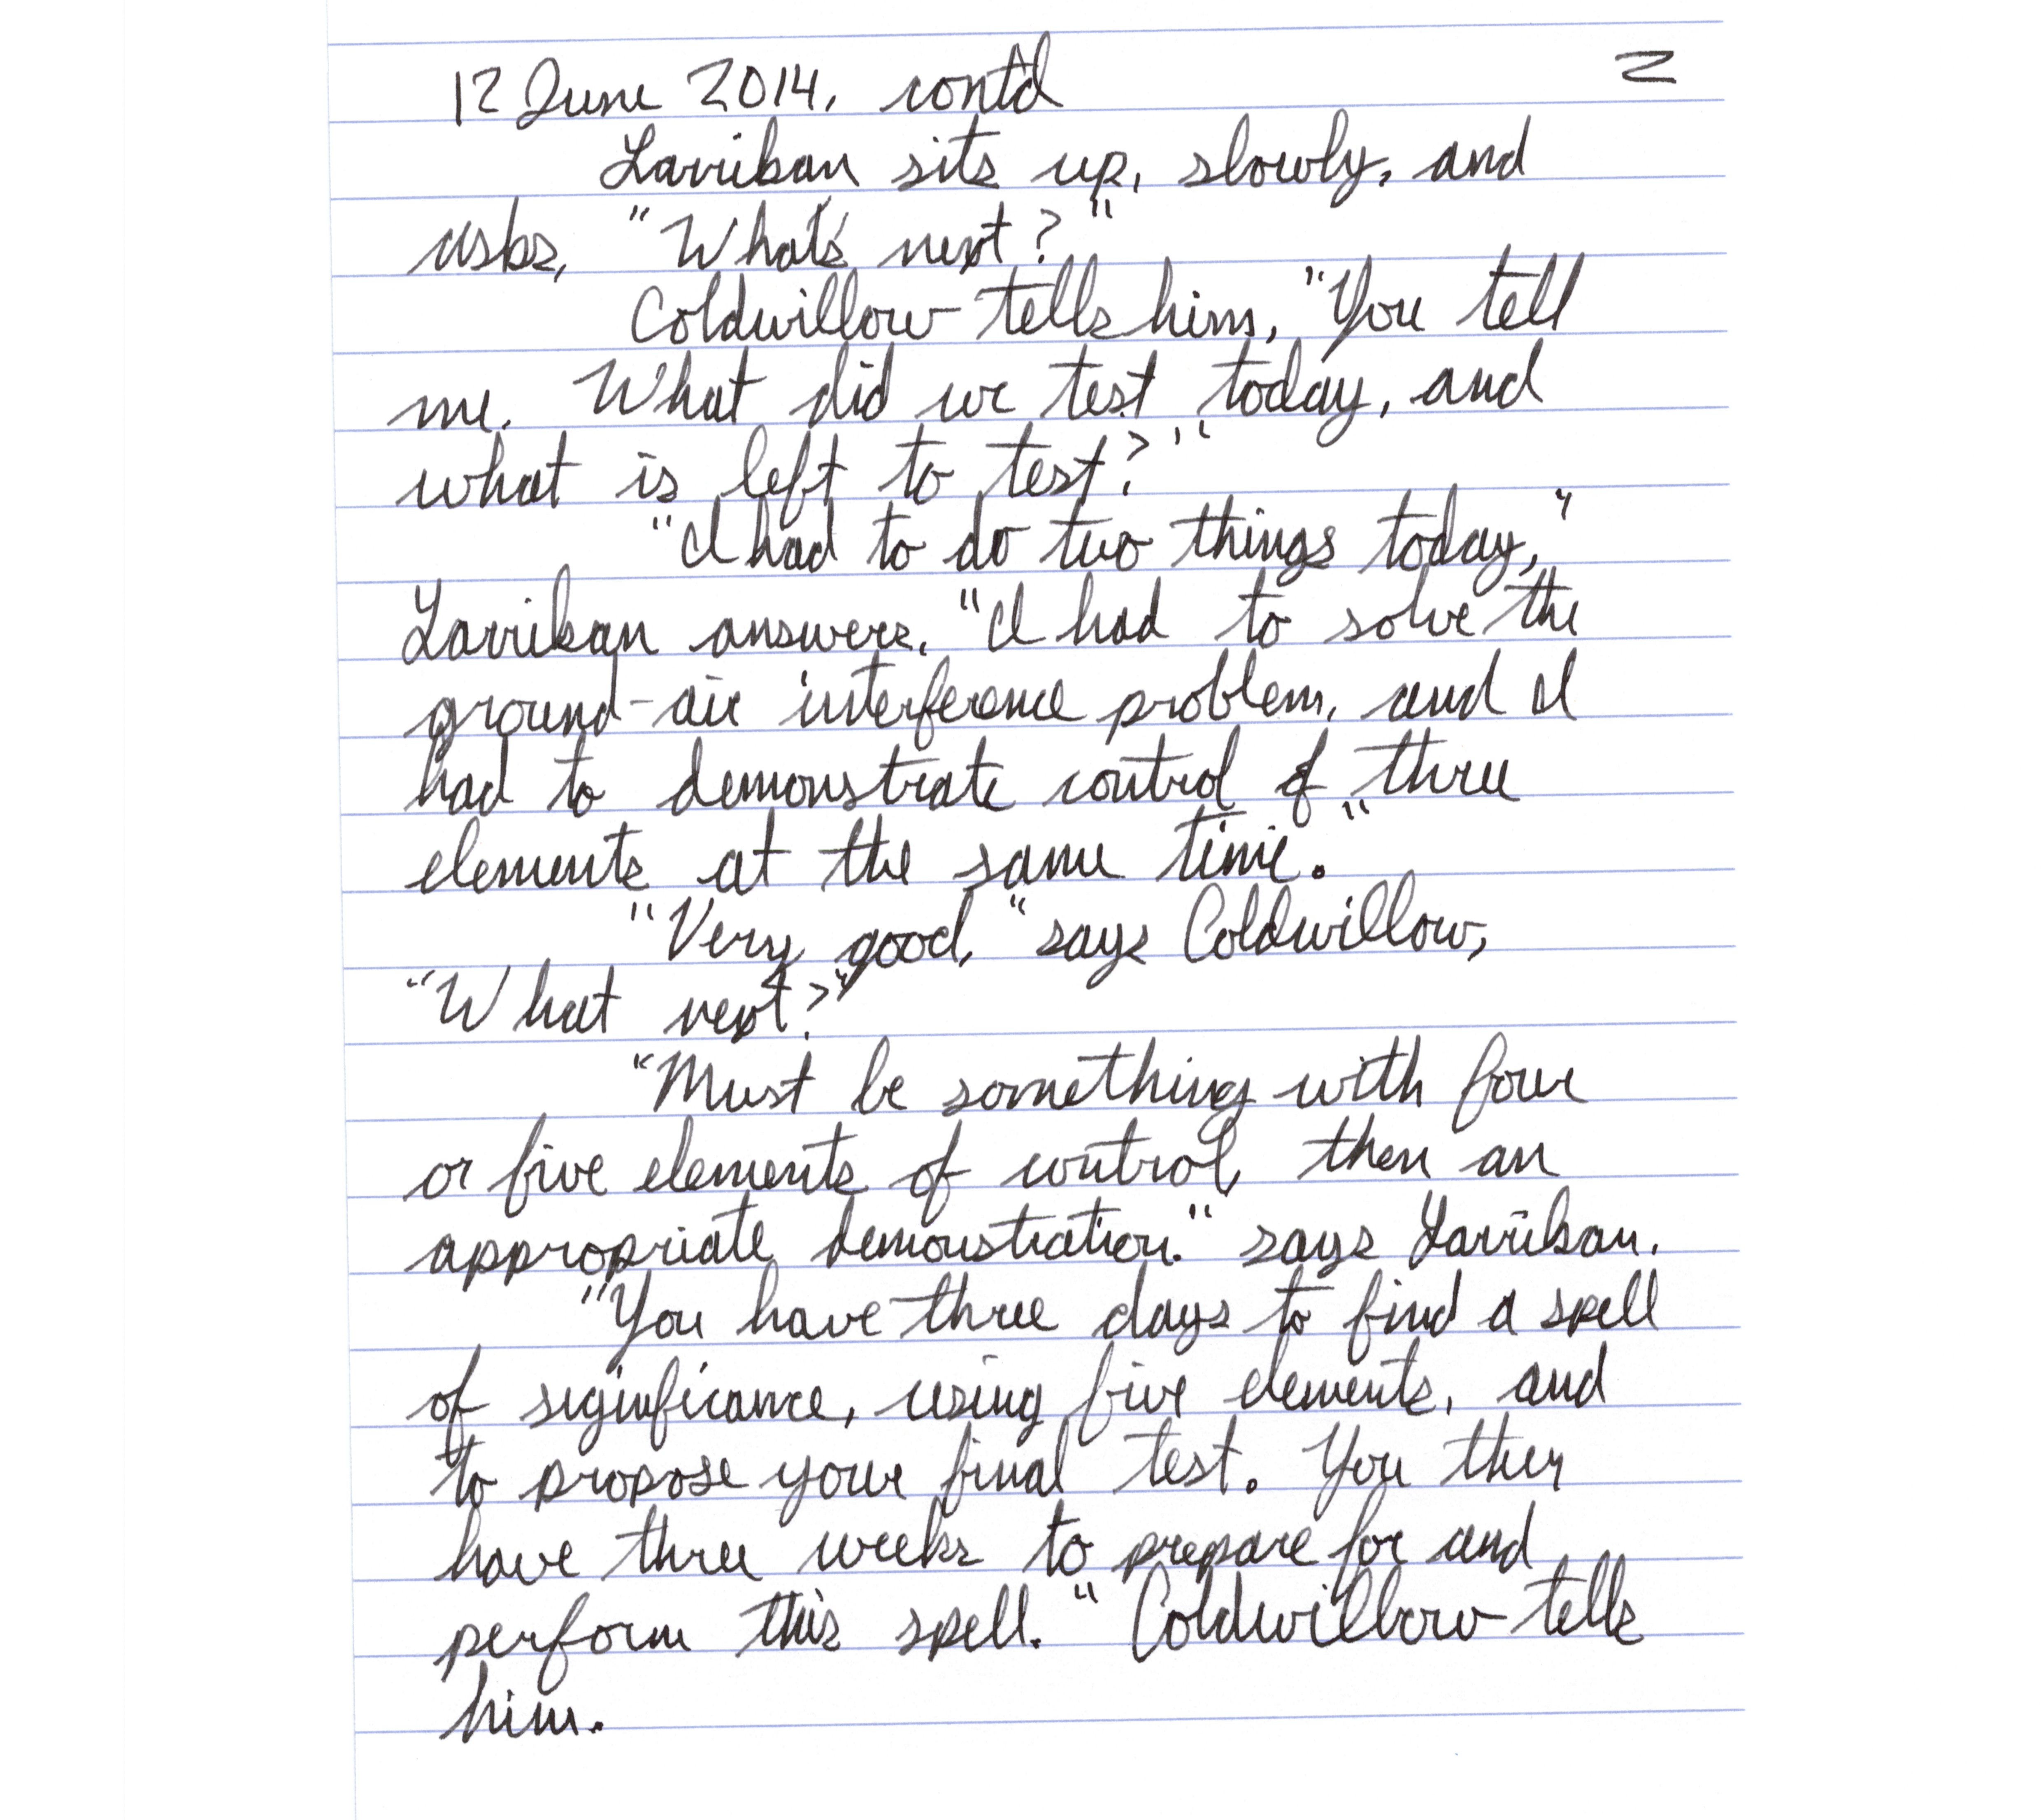 12 June 2014, cont'd 2
Larrikan sits up, slowly, and
asks, "What's next?"
Coldwillow tells him, "You tell
me. What did we test today, and
what is left to test?"
"I had to do two things today,"
Larrikan answers, "I had to solve the
ground-air interference problem, and I
had to demonstrate control of three
elements at the same time."
"Very good," says Coldwillow,
"What next?"
"Must be something with four
or five elements of control, then an
appropriate demonstration." says Larrikan.
"You have three days to find a spell
of significance, using five elements, and
to propose your final test. You then
have three weeks to prepare for and
perform this spell." Coldwillow tells
him.